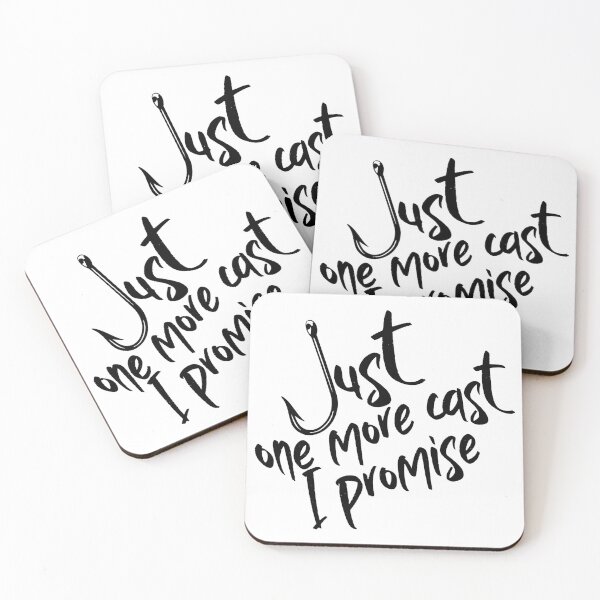 Just
cast
Just
one more cast
promise
Just
one more cast
I promise
Just
one more cast
I promise